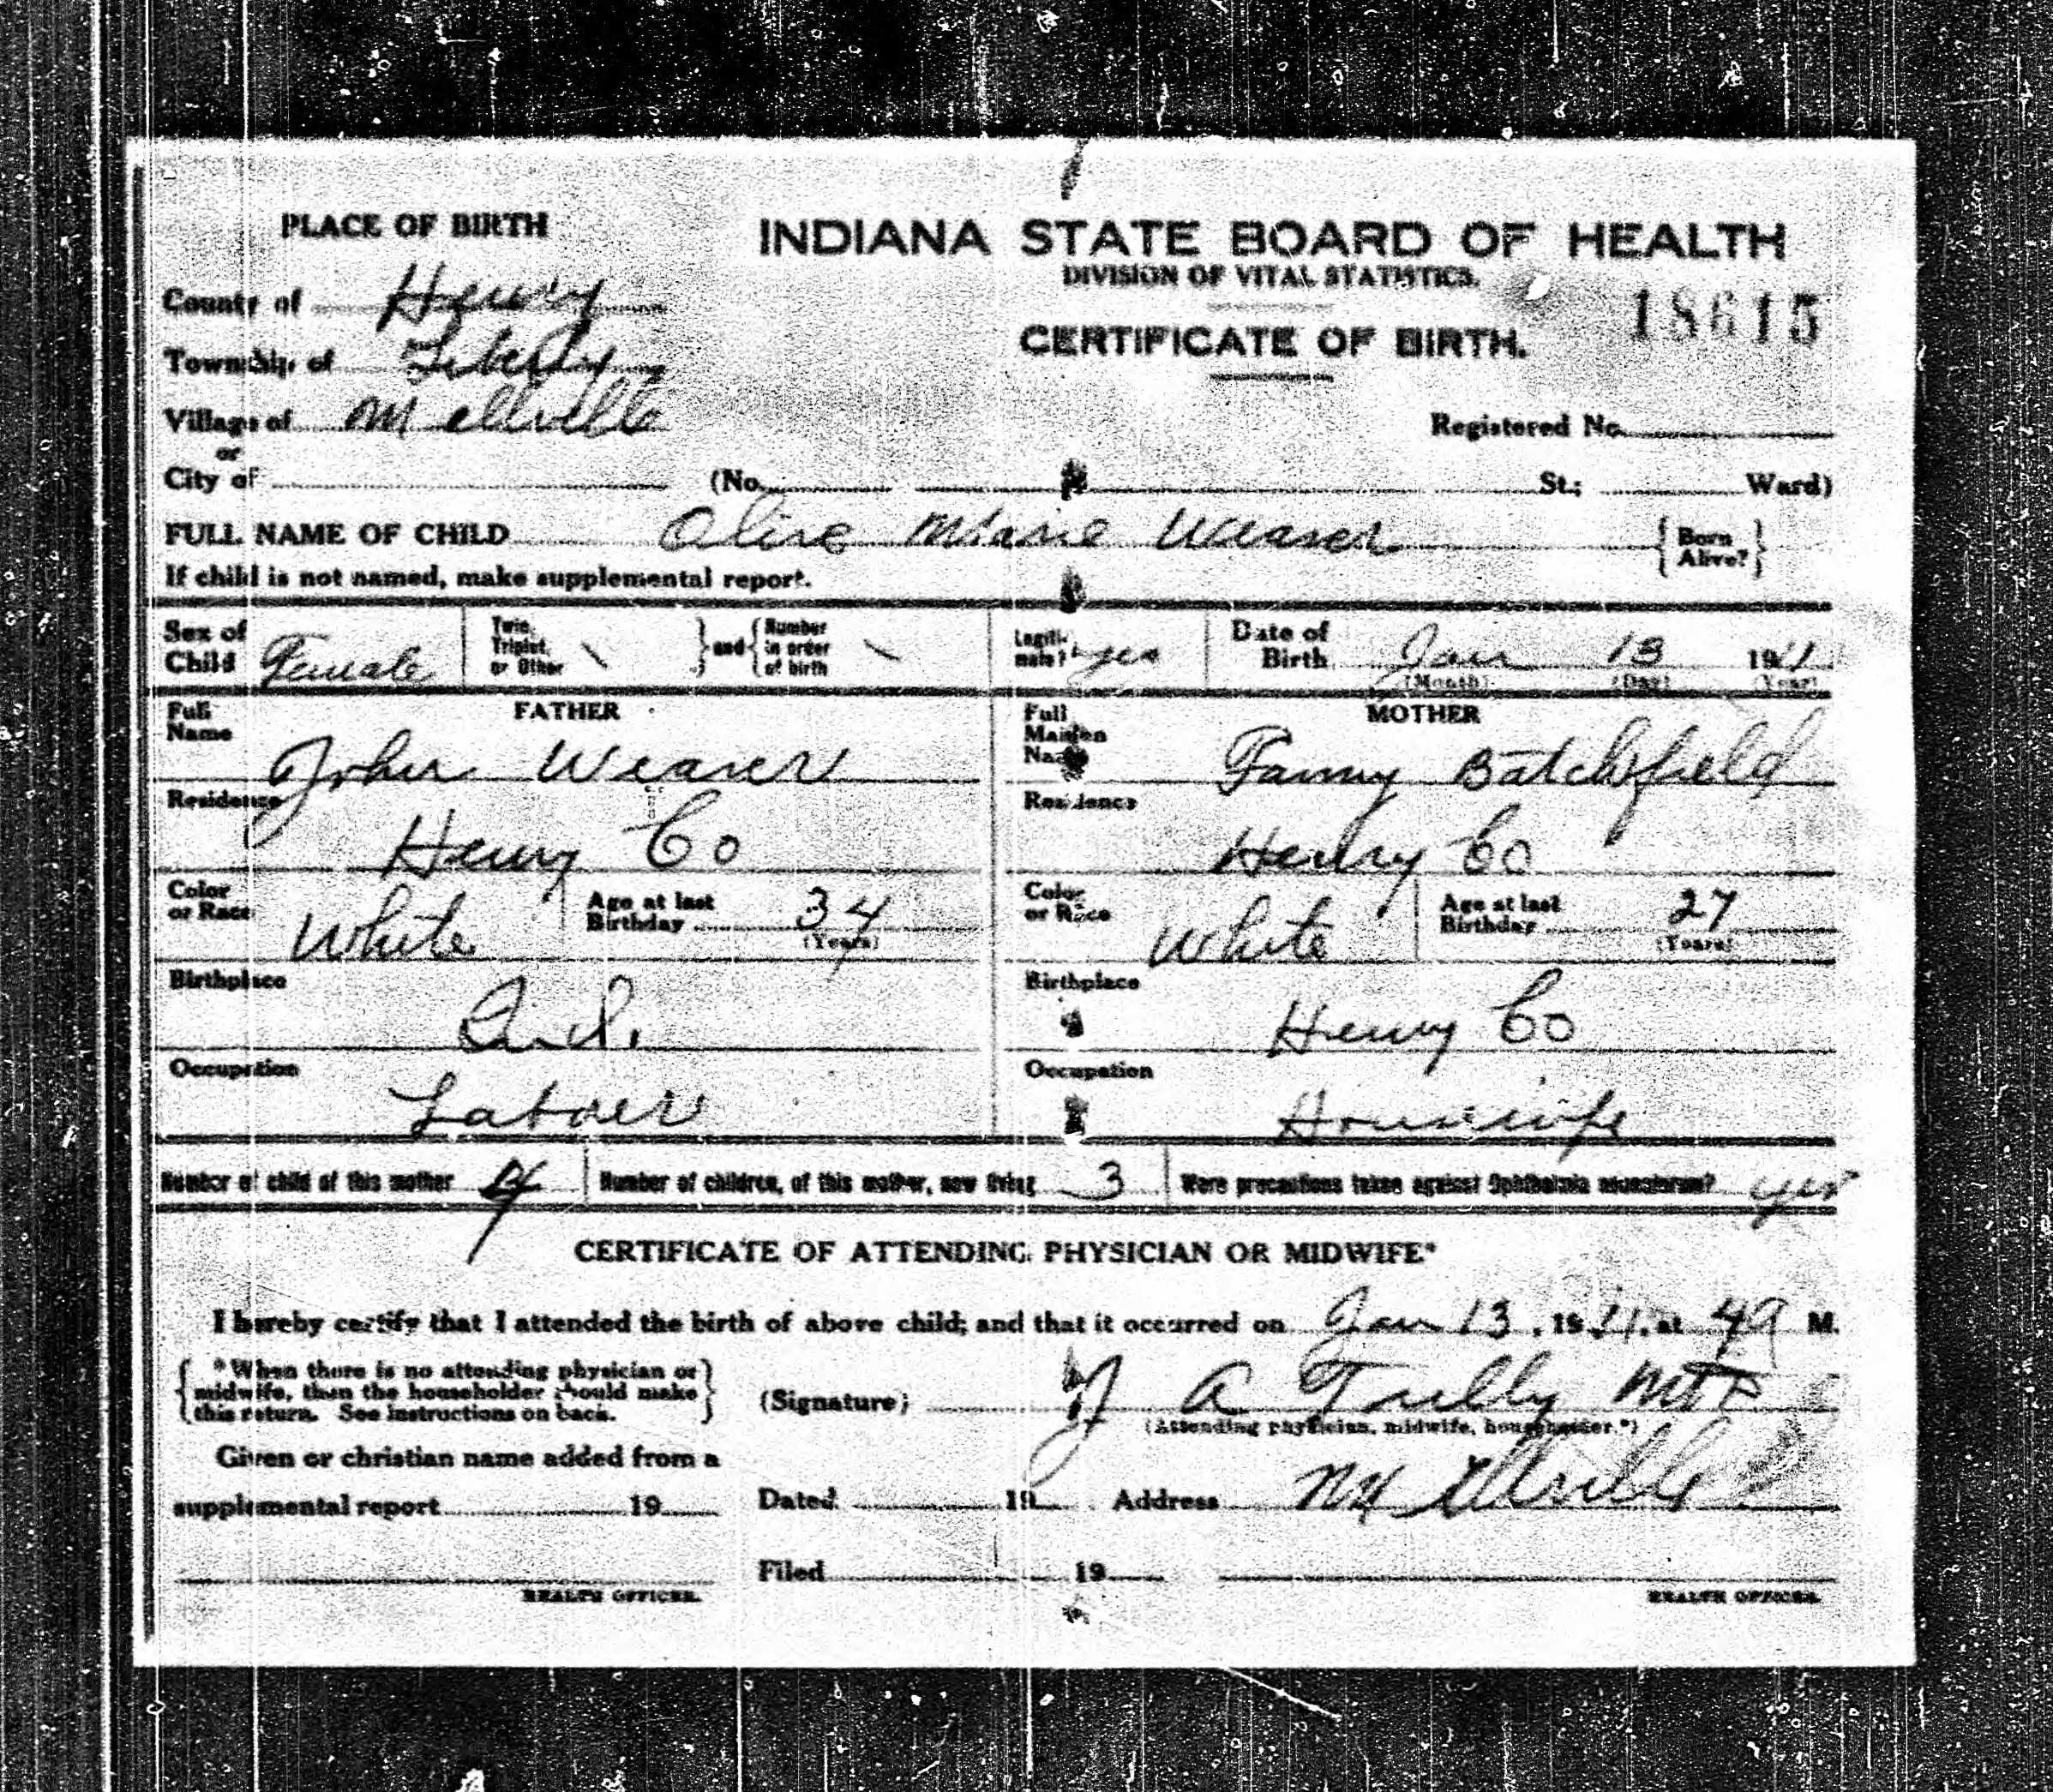 PLACE OF BIRTH
INDIANA STATE BOARD OF HEALTH
DIVISION OF VITAL STATISTICS.
18615
CERTIFICATE OF BIRTH.
County of Henry
Township of Liberty
Village of Mellville
or
City of
Registered No.
(No. St.; Ward)
FULL NAME OF CHILD Olive Marie Weaver { Born Alive? }
If child is not named, make supplemental report.
Sex of Child Female
Twin, Triplet, or Other \ } and { Number in order of birth \
Legitimate? yes
Date of Birth Jan 13 1911
(Month) (Day) (Year)
FATHER
Full Name John Weaver
Residence Henry Co
Color or Race White
Age at last Birthday 34
(Years)
Birthplace Ind.
Occupation Laborer
MOTHER
Full Maiden Name Fanny Batchfield
Residence Henry Co
Color or Race White
Age at last Birthday 27
(Years)
Birthplace Henry Co
Occupation Housewife
Number of child of this mother 4
Number of children, of this mother, now living 3
Were precautions taken against Ophthalmia neonatorum? yes
CERTIFICATE OF ATTENDING PHYSICIAN OR MIDWIFE*
I hereby certify that I attended the birth of above child; and that it occurred on Jan 13, 1911, at 4 M.
{ *When there is no attending physician or
midwife, then the householder should make
this return. See instructions on back. }
(Signature) J A M D
(Attending physician, midwife, householder.*)
Given or christian name added from a
supplemental report 19
Dated 19 Address Mellville
Filed 19
HEALTH OFFICER.
HEALTH OFFICER.